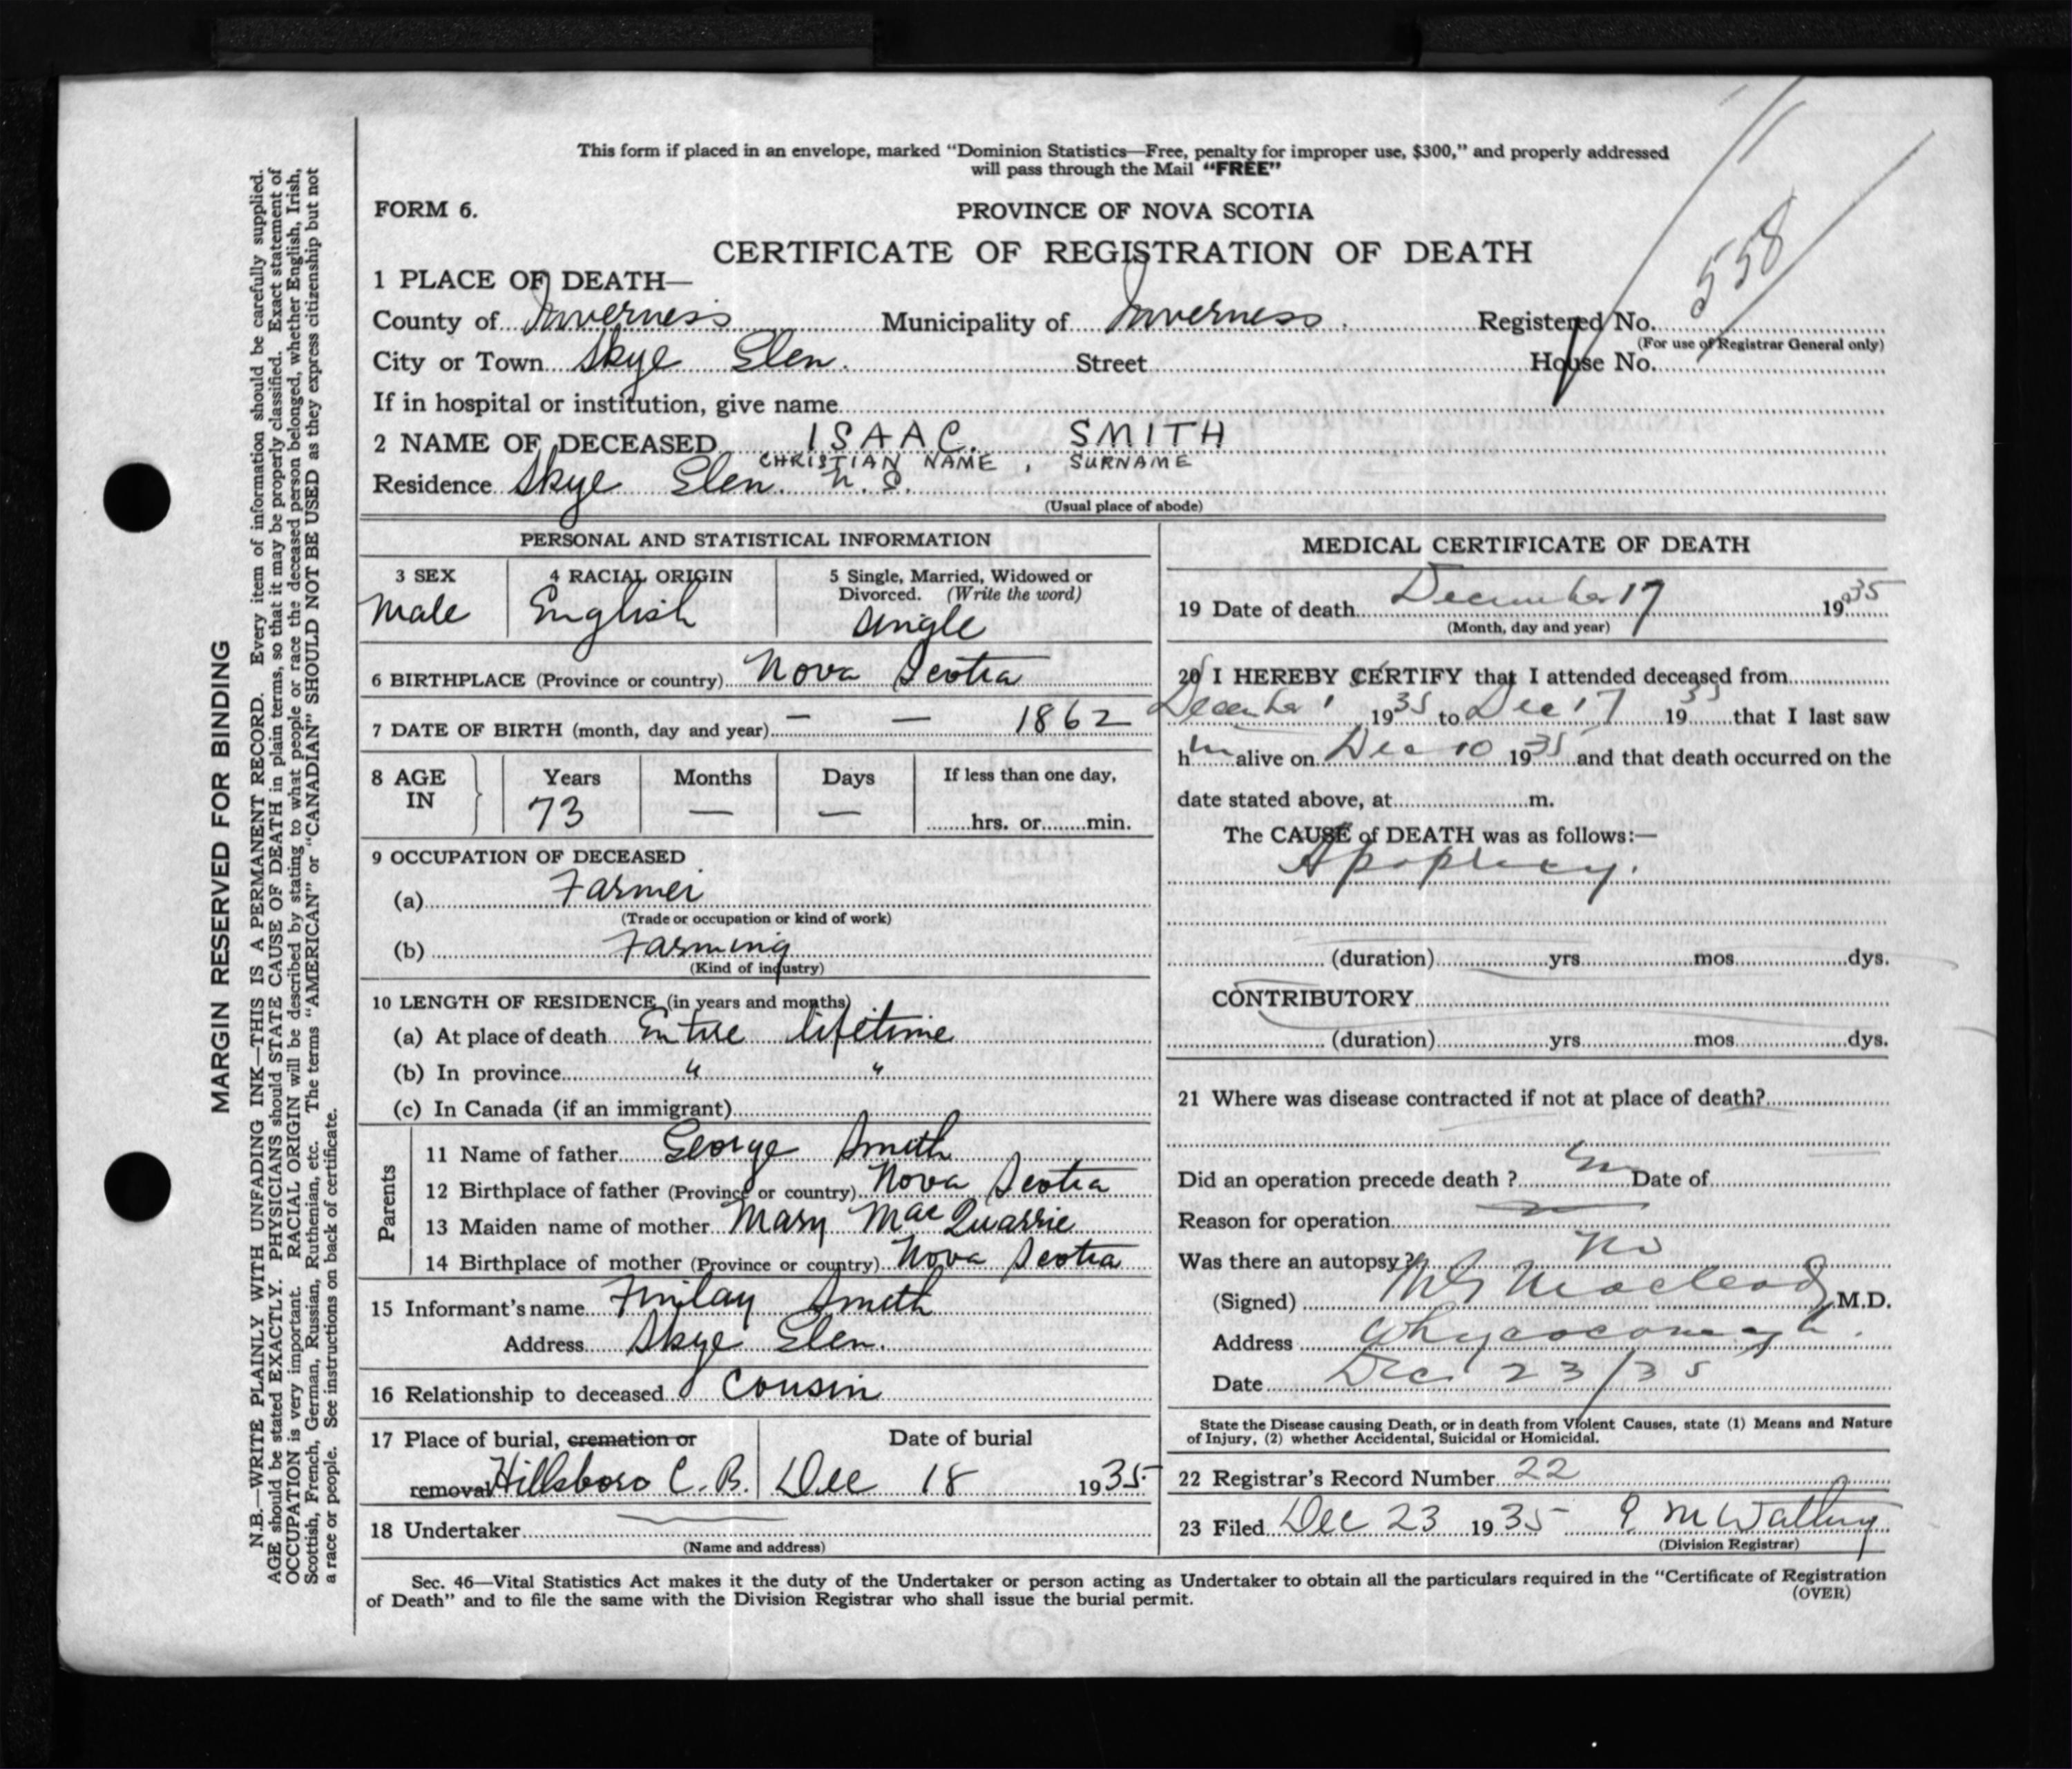 This form if placed in an envelope, marked “Dominion Statistics—Free, penalty for improper use, $300,” and properly addressed
will pass through the Mail “FREE”
FORM 6.
PROVINCE OF NOVA SCOTIA
558
CERTIFICATE OF REGISTRATION OF DEATH
1 PLACE OF DEATH—
County of Inverness Municipality of Inverness Registered No.
(For use of Registrar General only)
City or Town Skye Glen. Street House No.
If in hospital or institution, give name
2 NAME OF DECEASED ISAAC. SMITH
CHRISTIAN NAME, SURNAME
Residence Skye Glen. N.S.
(Usual place of abode)
PERSONAL AND STATISTICAL INFORMATION
3 SEX 4 RACIAL ORIGIN 5 Single, Married, Widowed or
Divorced. (Write the word)
Male English Single
6 BIRTHPLACE (Province or country) Nova Scotia
7 DATE OF BIRTH (month, day and year) — — 1862
8 AGE IN Years Months Days If less than one day,
73 — — hrs. or min.
9 OCCUPATION OF DECEASED
(a) Farmer
(Trade or occupation or kind of work)
(b) Farming
(Kind of industry)
10 LENGTH OF RESIDENCE (in years and months)
(a) At place of death Entire lifetime
(b) In province " "
(c) In Canada (if an immigrant)
Parents
11 Name of father George Smith
12 Birthplace of father (Province or country) Nova Scotia
13 Maiden name of mother Mary MacQuarrie
14 Birthplace of mother (Province or country) Nova Scotia
15 Informant's name Finlay Smith
Address Skye Glen.
16 Relationship to deceased Cousin
17 Place of burial, cremation or Date of burial
removal Hillsboro C.B. Dec 18 1935
18 Undertaker
(Name and address)
MEDICAL CERTIFICATE OF DEATH
19 Date of death December 17 1935
(Month, day and year)
20 I HEREBY CERTIFY that I attended deceased from
December 1 1935 to Dec 17 1935 that I last saw
him alive on Dec 10 1935 and that death occurred on the
date stated above, at m.
The CAUSE of DEATH was as follows:—
Apoplexy.
(duration) yrs mos dys.
CONTRIBUTORY
(duration) yrs mos dys.
21 Where was disease contracted if not at place of death?
Did an operation precede death ? Date of
Reason for operation
Was there an autopsy? No
(Signed) Macleod, M.D.
Address Whycocomagh.
Date Dec 23/35
State the Disease causing Death, or in death from Violent Causes, state (1) Means and Nature
of Injury, (2) whether Accidental, Suicidal or Homicidal.
22 Registrar's Record Number 22
23 Filed Dec 23 1935
(Division Registrar)
Sec. 46—Vital Statistics Act makes it the duty of the Undertaker or person acting as Undertaker to obtain all the particulars required in the “Certificate of Registration
of Death” and to file the same with the Division Registrar who shall issue the burial permit.
(OVER)
MARGIN RESERVED FOR BINDING
N.B.—WRITE PLAINLY WITH UNFADING INK—THIS IS A PERMANENT RECORD. Every item of information should be carefully supplied.
AGE should be stated EXACTLY. PHYSICIANS should STATE CAUSE OF DEATH in plain terms, so that it may be properly classified. Exact statement of
OCCUPATION is very important. RACIAL ORIGIN will be described by stating to what people or race the deceased person belonged, whether English, Irish,
Scottish, French, German, Russian, Ruthenian, etc. The terms “AMERICAN” or “CANADIAN” SHOULD NOT BE USED as they express citizenship but not
a race or people. See instructions on back of certificate.